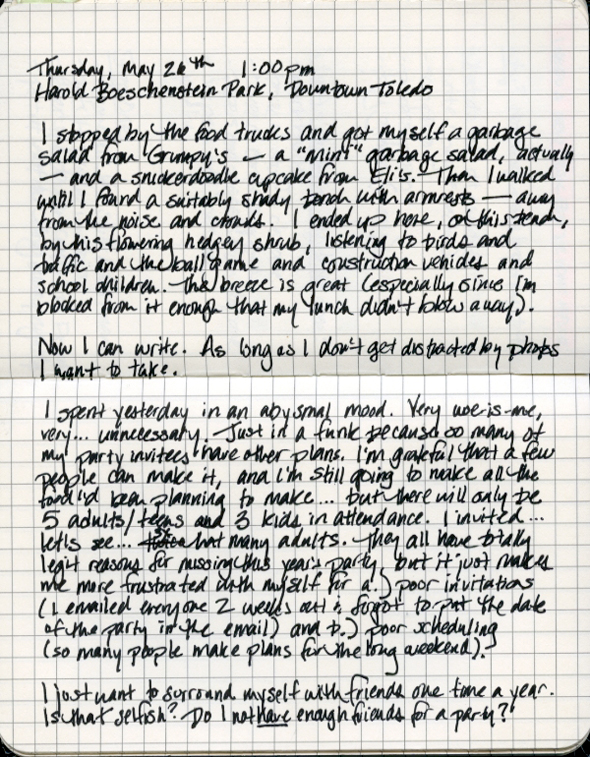 Thursday, May 26th 1:00pm
Harold Boeschenstein Park, Downtown Toledo
I stopped by the food trucks and got myself a garbage
salad from Grumpy's — a "mini" garbage salad, actually
— and a snickerdoodle cupcake from Eli's. Then I walked
until I found a suitably shady bench with armrests — away
from the noise and crowds. I ended up here, on this bench,
by this flowering hedgey shrub, listening to birds and
traffic and the ball game and construction vehicles and
school children. The breeze is great (especially since I'm
blocked from it enough that my lunch didn't blow away).
Now I can write. As long as I don't get distracted by photos
I want to take.
I spent yesterday in an abysmal mood. Very woe-is-me,
very... unnecessary. Just in a funk because so many of
my party invitees have other plans. I'm grateful that a few
people can make it, and I'm still going to make all the
food I'd been planning to make... but there will only be
5 adults/teens and 3 kids in attendance. I invited...
let's see... that many adults. They all have totally
legit reasons for missing this year's party, but it just makes
me more frustrated with myself for a.) poor invitations
(I emailed everyone 2 weeks out & forgot to put the date
of the party in the email) and b.) poor scheduling
(so many people make plans for the long weekend).
I just want to surround myself with friends one time a year.
Is that selfish? Do I not have enough friends for a party?